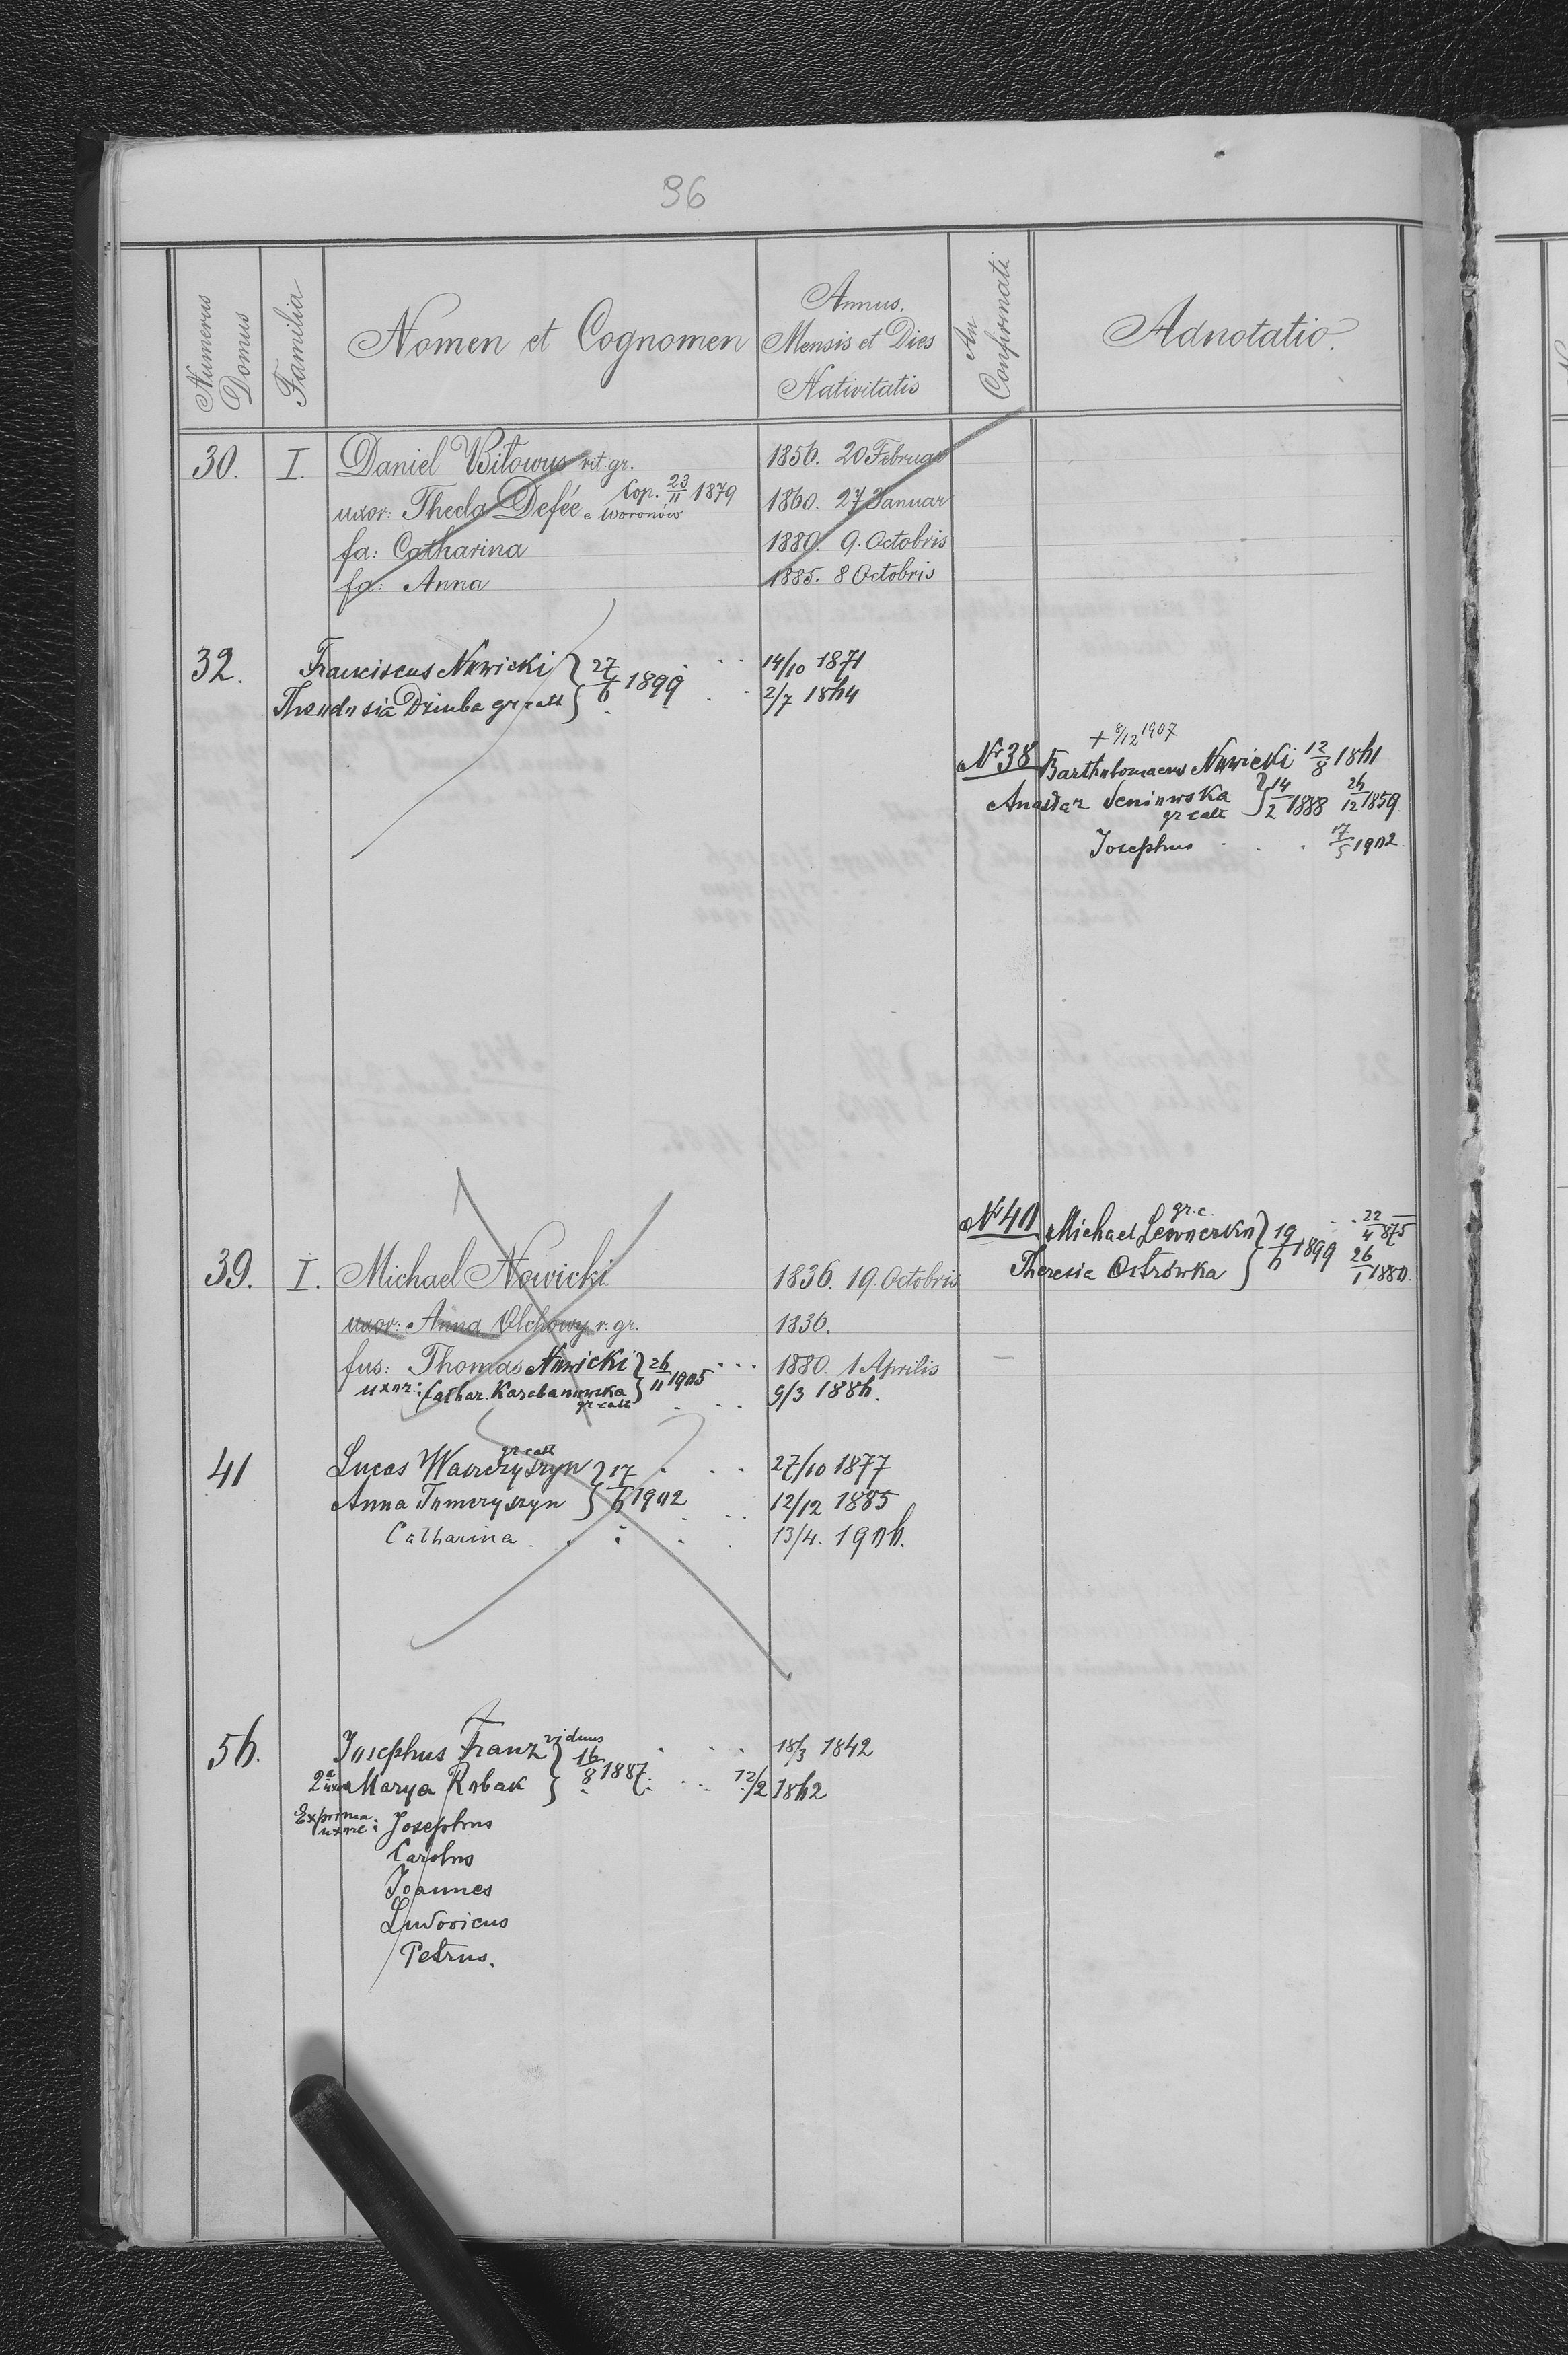 96
Numerus Domus
Familia
Nomen et Cognomen
Annus. Mensis et Dies Nativitatis
An Confirmati
Adnotatio.
30. I. Daniel Bitowus rit. gr. 1856. 20 Februar
uxor: Thecla Defée e Woronów Cop. 23/11 1879 1860. 27 Januar
fa: Catharina 1880. 9. Octobris
fa: Anna 1885. 8 Octobris
32. Franciscus Nowicki } 27/6 1899 14/10 1871
Theodosia Dziuba gr cath 2/7 1864
+ 8/12 1907
Nr 38 Bartholomaeus Nowicki 12/8 1861
Anastaz Seniowska gr cath } 14/2 1888 26/12 1859
Josephus 17/5 1902
Nr 40 Michael gr. c. } 19/6 1899 22/4 875
Theresia Ostrówka 26/1 1880.
39. I. Michael Nowicki 1836. 19. Octobris
uxor: Anna Olchowy r. gr. 1836.
fus: Thomas Nowicki } 26/11 1905 1880. 1 Aprilis
uxor: Cathar. Karabanowska gr cath 9/3 1886.
41 Lucas Wawrzyszyn gr cath } 17/6 1902 27/10 1877
Anna Tomczyszyn 12/12 1885
Catharina 13/4. 1906.
56. Josephus Franz viduus } 16/8 1887. 18/3 1842
2a uxor Marya Robak 12/2 1862
Ex prima uxore: Josephus
Carolus
Joannes
Ludovicus
Petrus.